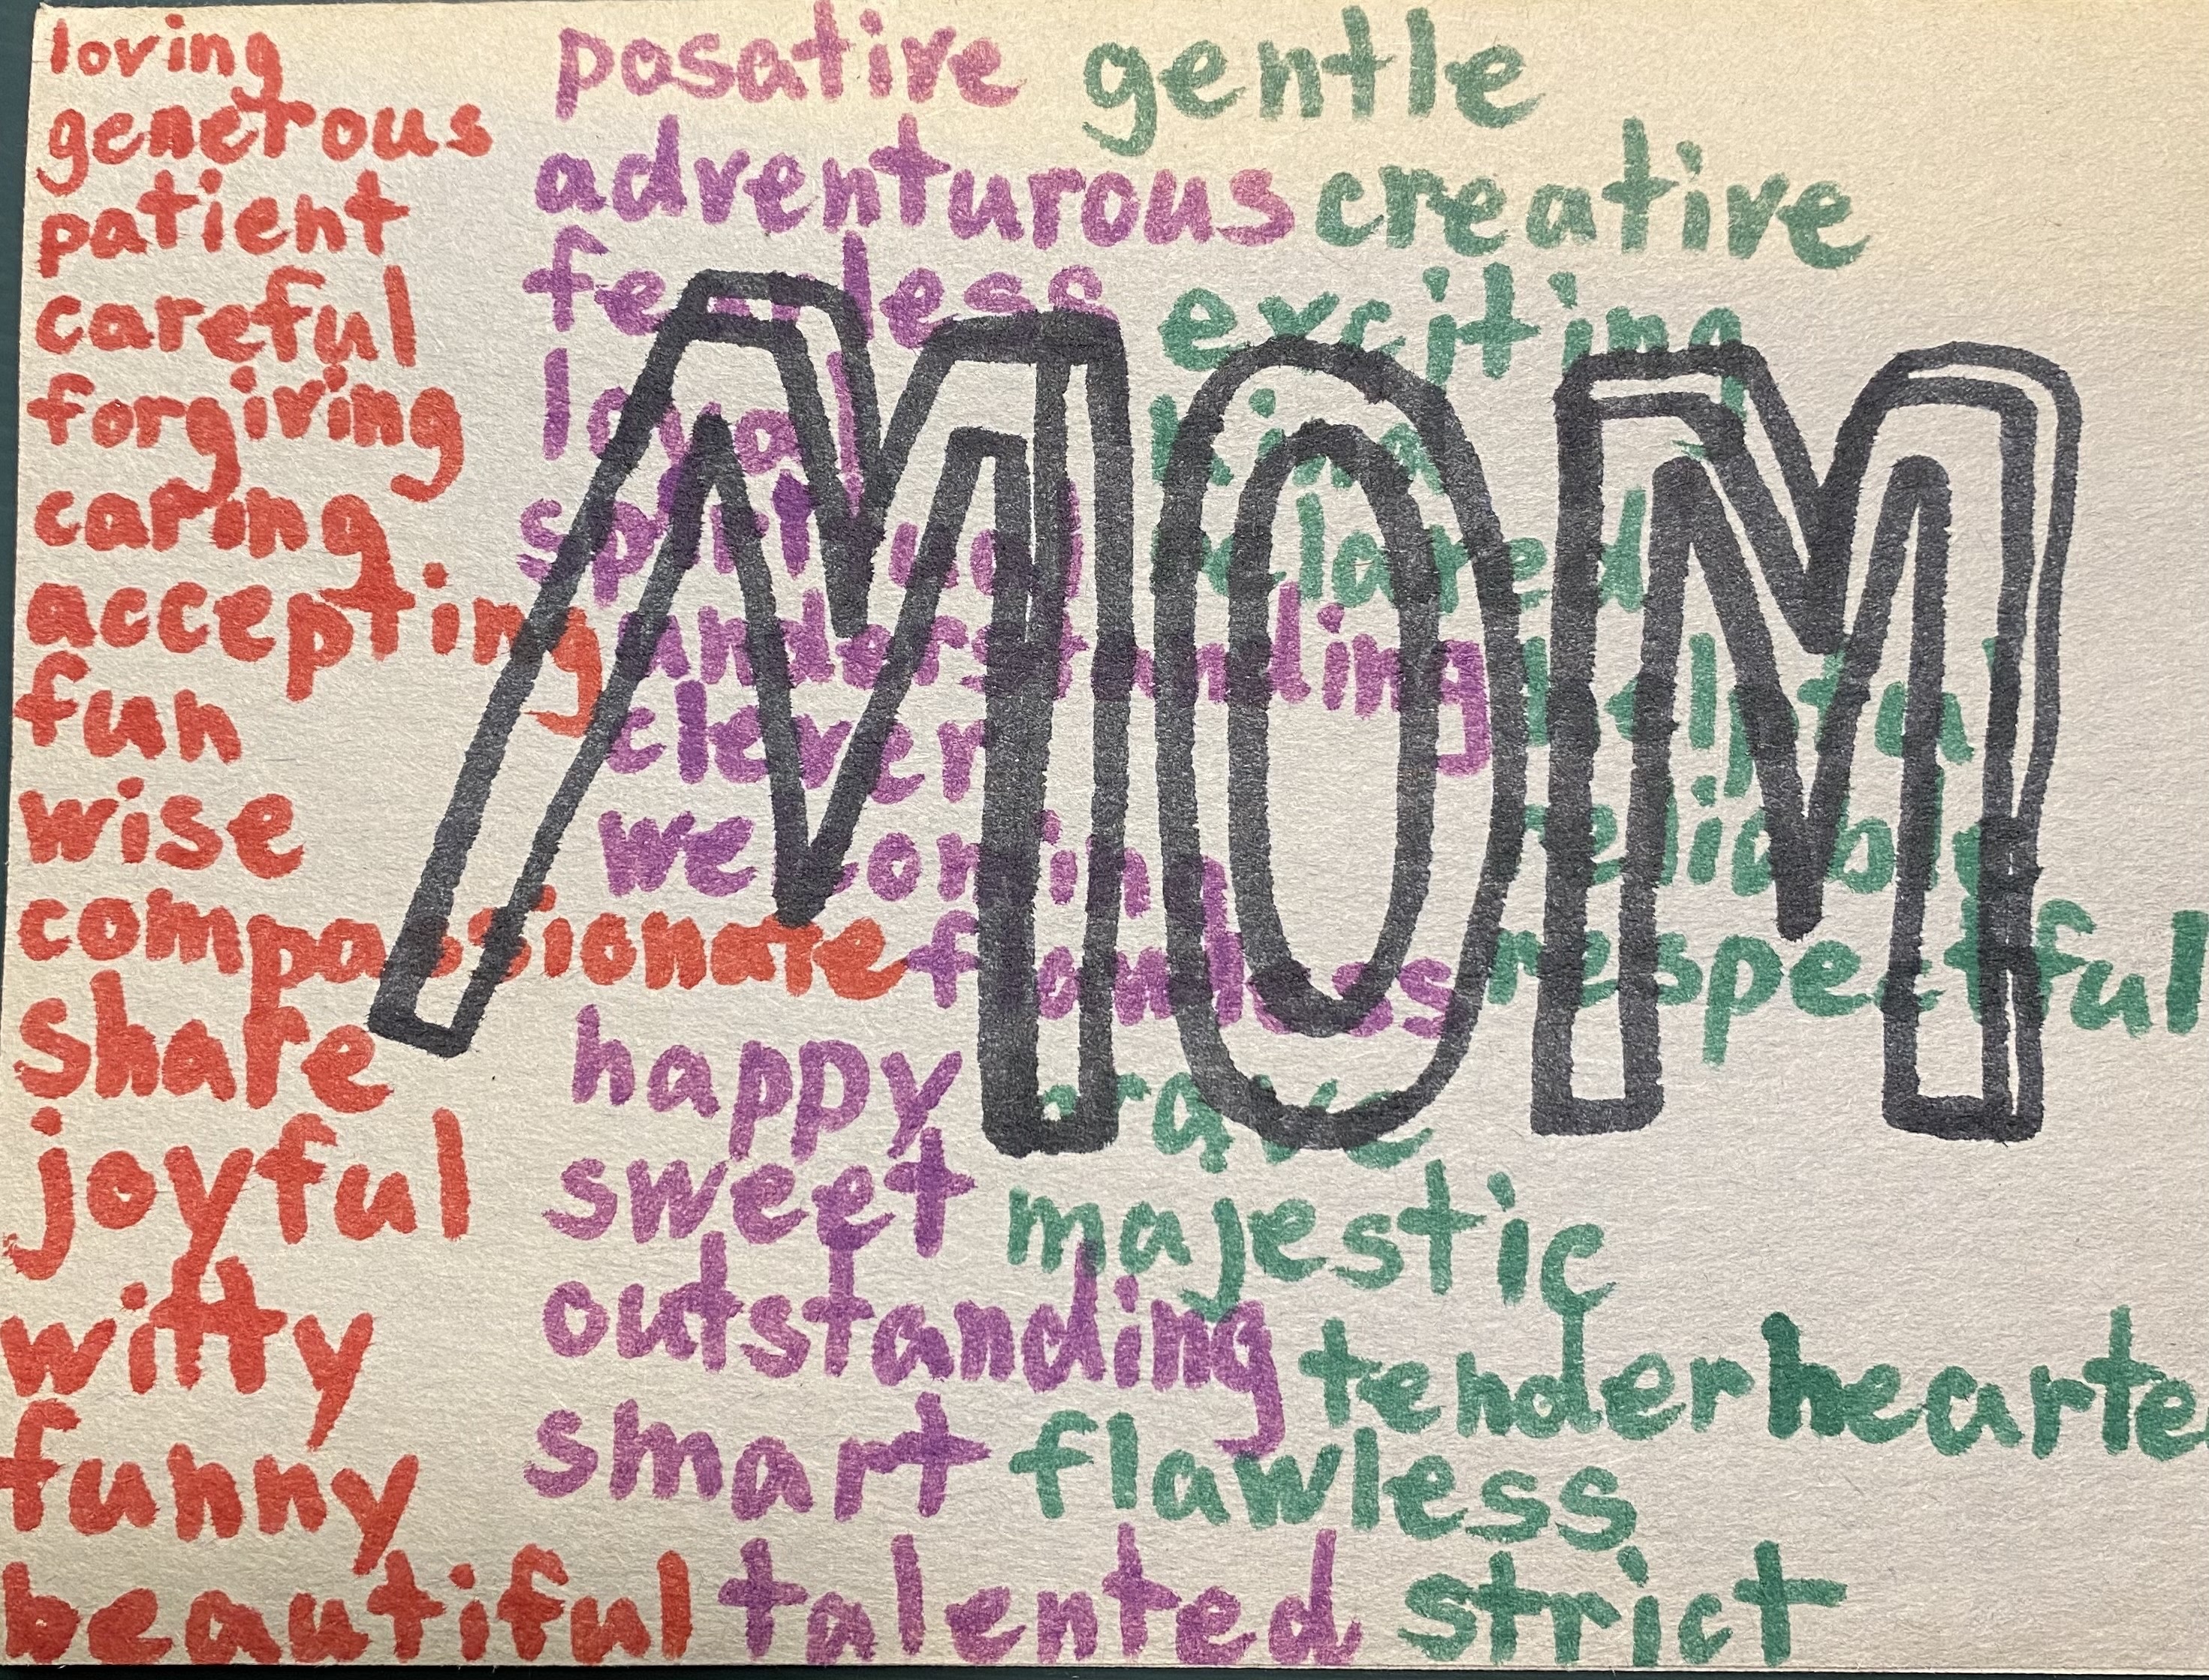 loving
generous
patient
careful
forgiving
caring
accepting
fun
wise
compassionate
share
joyful
witty
funny
beautiful
posative
adventurous
fearless
loyal
spiritual
understanding
clever
happy
sweet
outstanding
smart
talented
gentle
creative
exciting
kind
relaxed
helpful
reliable
respectful
brave
majestic
tenderhearte
flawless
strict
MOM